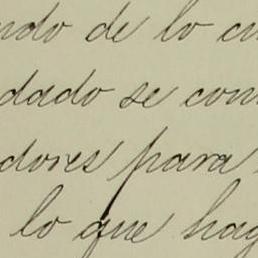 ndo de lo cu
dado se com
dores para
lo que hag